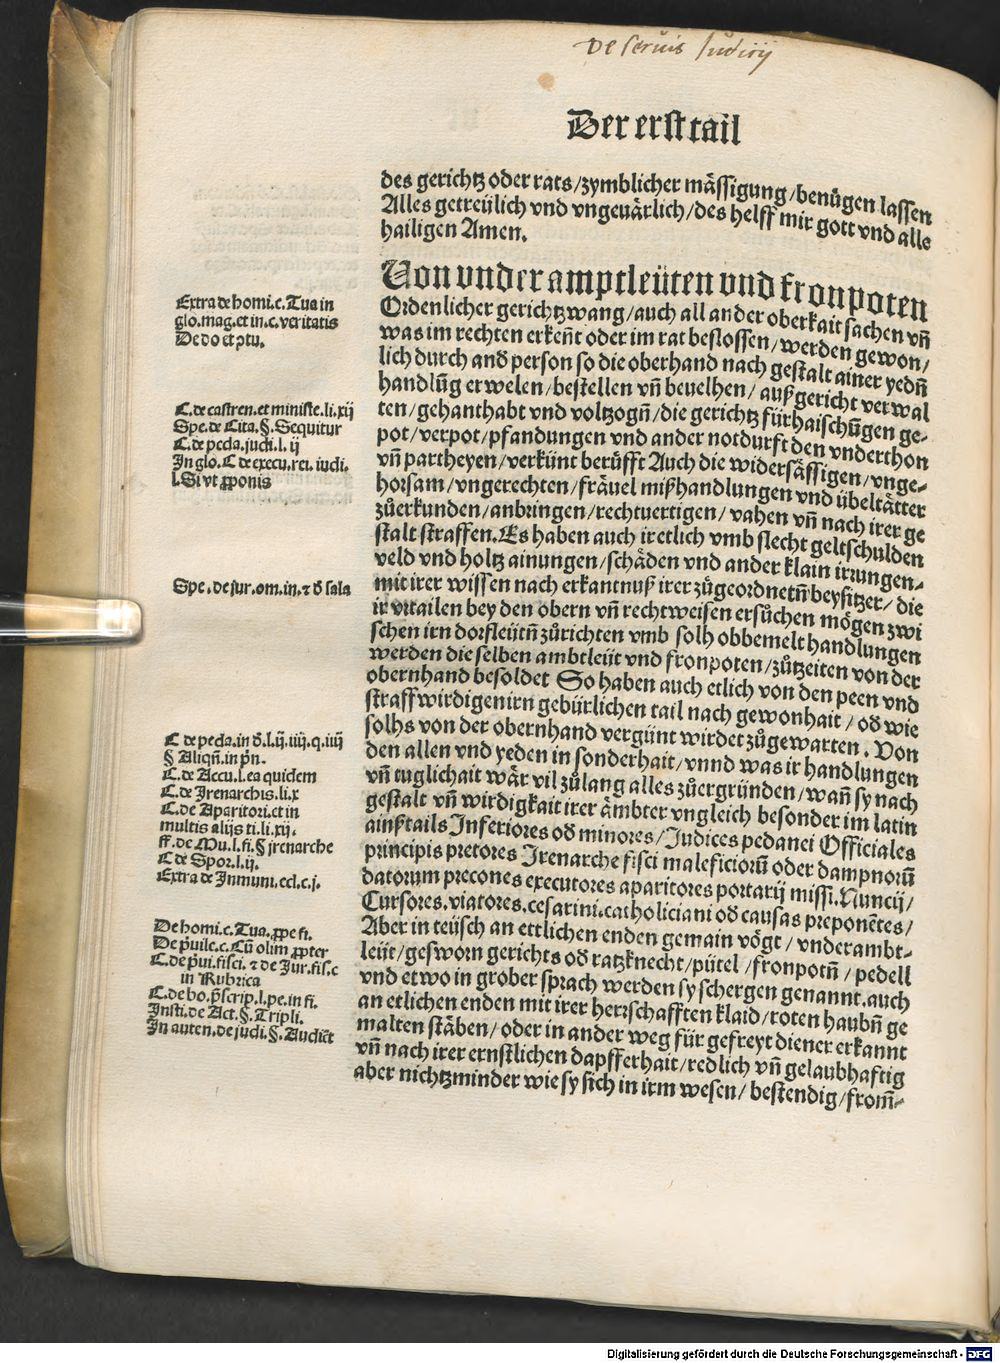 De seruis Iudicij
Der erst tail
des gerichtz oder rats/zymblicher mässigung/benügen lassen
Alles getreülich vnd vngeuärlich/des helff mir gott vnd alle
hailigen Amen.
Von vnder amptleüten vnd fronpoten
Ordenlicher gerichtzwang/auch all ander oberkait sachen vn̄
was im rechten erken̄t oder im rat beslossen/werden gewon/
lich durch and̄ person so die oberhand nach gestalt ainer yedn̄
handlūg erwelen/bestellen vn̄ beuelhen/außgericht verwal
ten/gehanthabt vnd voltzogn̄/die gerichtz fürhaischūgen ge-
pot/verpot/pfandungen vnd ander notdurft den vnderthon
vn̄ partheyen/verkünt berüfft Auch die widersässigen/vnge-
horsam/vngerechten/fräuel mißhandlungen vnd übeltätter
zůerkunden/anbringen/rechtuertigen/vahen vn̄ nach irer ge
stalt straffen. Es haben auch iretlich vmb slecht geltschulden
veld vnd holtz ainungen/schäden vnd ander klain irrungen-
mit irer wissen nach erkantnuß irer zůgeordnetn̄ beysitzer/die
ir vrtailen bey den obern vn̄ rechtweisen ersůchen mögen zwi
schen irn dorfleijtn̄ zůrichten vmb solh obbemelt handlungen
werden die selben ambtleijt vnd fronpoten/zůtzeiten von der
obernhand besoldet So haben auch etlich von den peen vnd
straffwirdigen irn gebürlichen tail nach gewonhait/od̄ wie
solhs von der obernhand vergünt wirdet zůgewarten. Von
den allen vnd yeden in sonderhait/vnnd was ir handlungen
vn̄ tuglichait wär vil zůlang alles zůergründen/wan̄ sy nach
gestalt vn̄ wirdigkait irer ämbter vngleich besonder im latin
ainßtails Inferiores od̄ minores/Judices pedanei Officiales
principis pretores Irenarche fisci maleficiorū oder dampnorū
datorum precones executores aparitores portarij missi. Nuncij/
Cursores. viatores. cesarini. catholiciani od̄ causas preponētes/
Aber in teüsch an ettlichen enden gemain vögt/vnderambt-
leijt/gesworn gerichts od̄ ratzknecht/pütel/fronpotn̄/pedell
vnd etwo in grober sprach werden sy schergen genannt. auch
an etlichen enden mit irer herrschafften klaid/roten haubn̄ ge
malten stäben/oder in ander weg für gefreyt diener erkannt
vn̄ nach irer ernstlichen dapfferhait/redlich vn̄ gelaubhaftig
aber nichtzminder wie sy sich in irm wesen/bestendig/from̄-
Extra de homi. c. Tua in
glo. mag. et in. c. veritatis
De do et ptu.
C. de castren. et ministe. li. xij
Spe. de Cita. §. Sequitur
C. de peda. judi. l. ij
In glo. C de execu. rei. iudi.
l. Si vt ꝓponis
Spe. de jur. om. in. ⁊ d̄ sala
C de peda. in d̄. l. ij. iiij. q. iiij
§ Aliqn̄. in pn̄.
C. de Accu. l. ea quidem
C. de Irenarchis. li. x
C. de Aparitori. et in
multis alijs ti. li. xij.
ff. de Mu. l. fi. § jrenarche
C de Spor. l. ij.
Extra de Inmuni. ecl. c. j.
De homi. c. Tua. ꝓpe fi.
De p̄uile. c. Cū olim ꝓpter
C. de p̄ui. fisci. ⁊ de Jur. fis. c
in Rubrica
C. de bo. p̄scrip. l. pe. in fi.
Insti. de Act. §. Tripli.
In auten. de judi. §. Audiēt
Digitalisierung gefördert durch die Deutsche Forschungsgemeinschaft - DFG